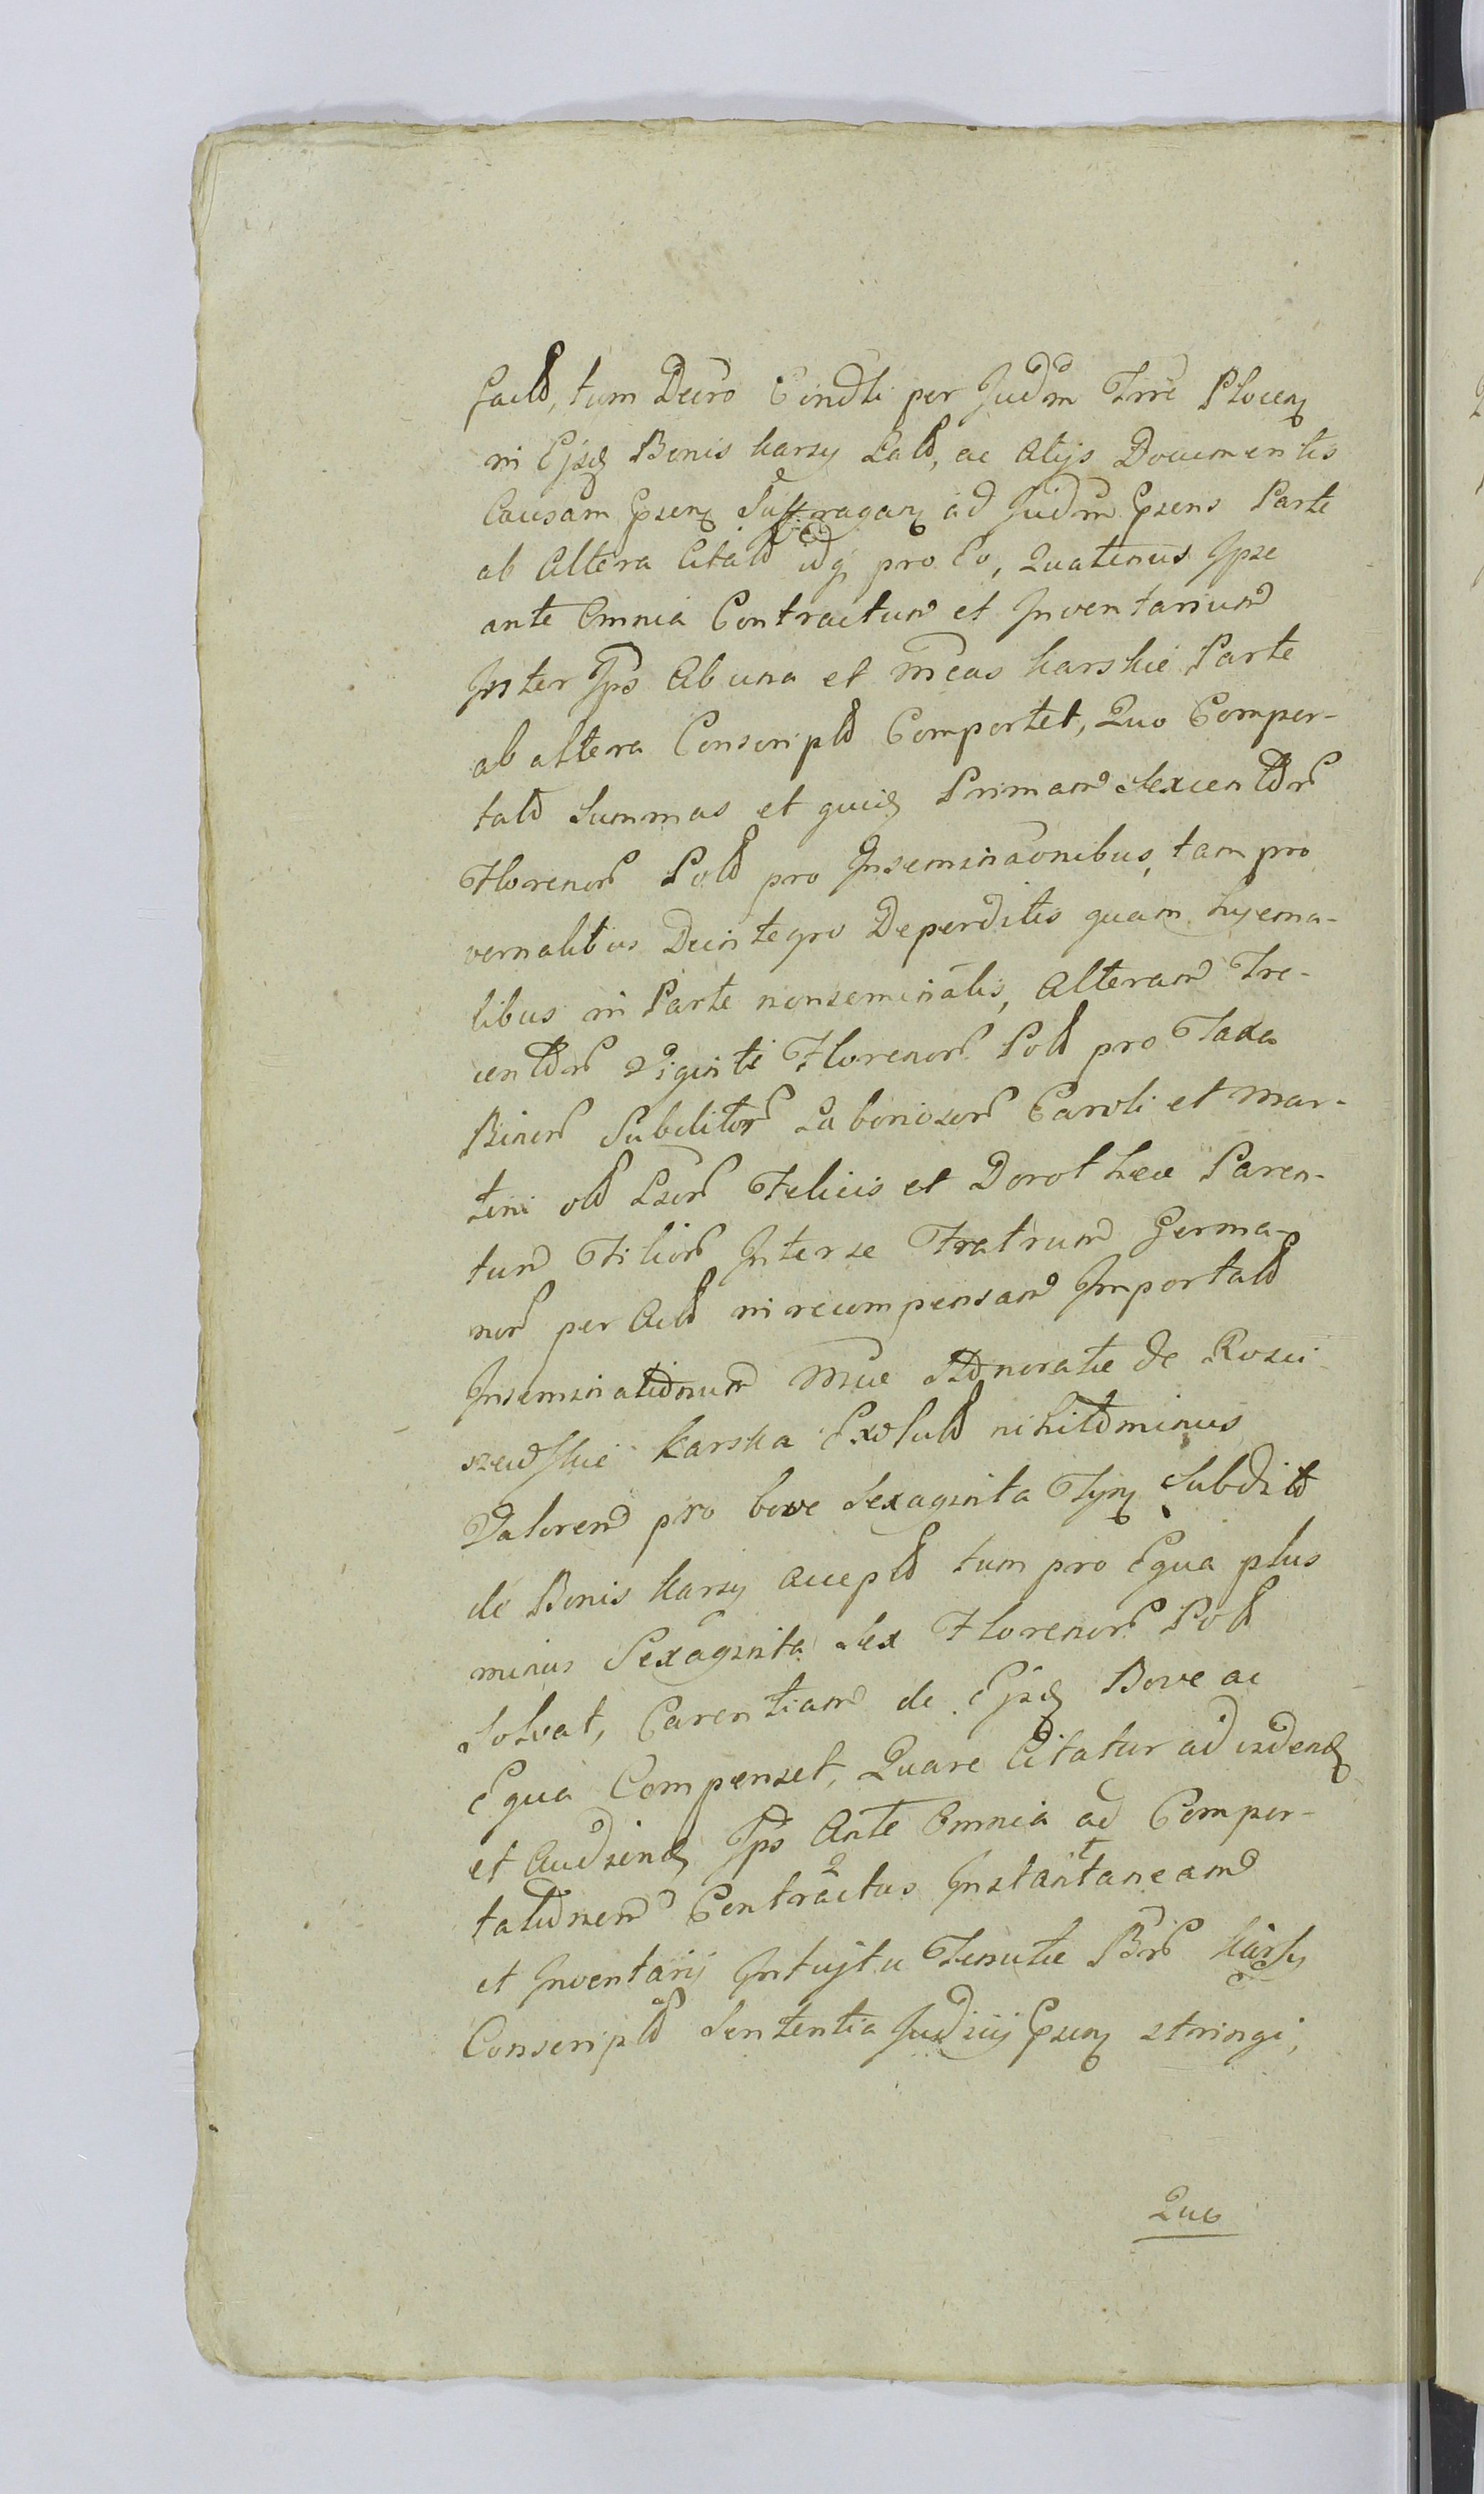 tum Decro Condti per Judm Trre Plocen
in Ejsd Bonis Karsy Lato, ac Alijs Documentis
Causam Suffragan ad Judm Parte
ab Altera Citato idq pro Eo, Quatenus Ipse
ante Omnia Contractum et Inventarium
Inter Ips Ab una et Mcas Karskie Parte
ab altera Conscripto Comportet, Quo Compor-
tato Summas et quid Primam Sexcentor
Florenor Pol pro Inseminaonibus, tam pro
vernalibus Deintegro Deperditis quam hyema-
libus in Parte nonseminatis, Alteram Tre-
centor Viginti Florenor Pol pro Taxa
Binor Subditor Laboriosor Caroli et Mar-
tini olim Felicis et Dorothea Paren-
tum Filior Inter se Fratrum Germa-
nor per Acto in recompensam Importato
Inseminationum Mcae Honoratae de Rosci-
szewskie Karska Exoluto nihilominus
Valorem pro bove Sexaginta Tyn Subdito
de Bonis Karsy accepto tum pro Equa plus
minus Sexaginta Sex Florenor Pol
Solvat, Carentiam de Ejsd Bove ac
Equa Compenset, Quare Citatur ad vidend
et Audiend Ips Ante Omnia ad Compor-
tationem Contractus Instantaneam
et Inventarij Intujtu Tenutae Bnr Karsy
Conscripto Sententia Judicij stringi,
Quo